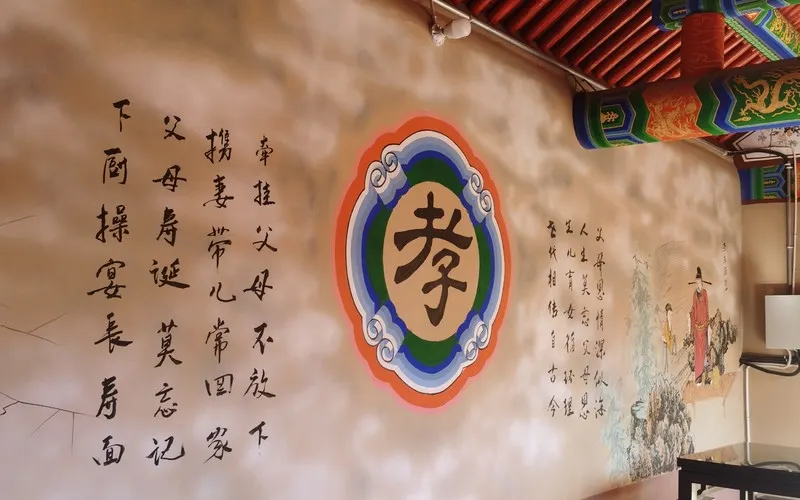 牵挂父母不放下
携妻带儿常回家
父母寿诞莫忘记
下厨操宴長寿面
孝
父母恩情深似海
人生莫忘父母恩
生儿育女循环理
世代相传自古今